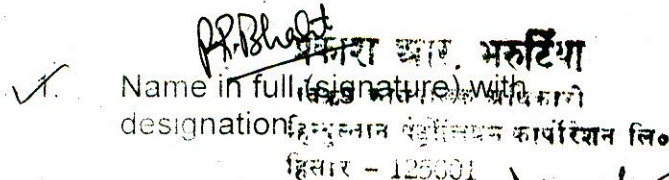 P.R. Bhartit
प्रकाश आर. भरुटिया
1. Name in full (signature) with
designation
हिन्दुस्तान पेट्रोलियम कार्पोरेशन लि०
हिसार - 125001